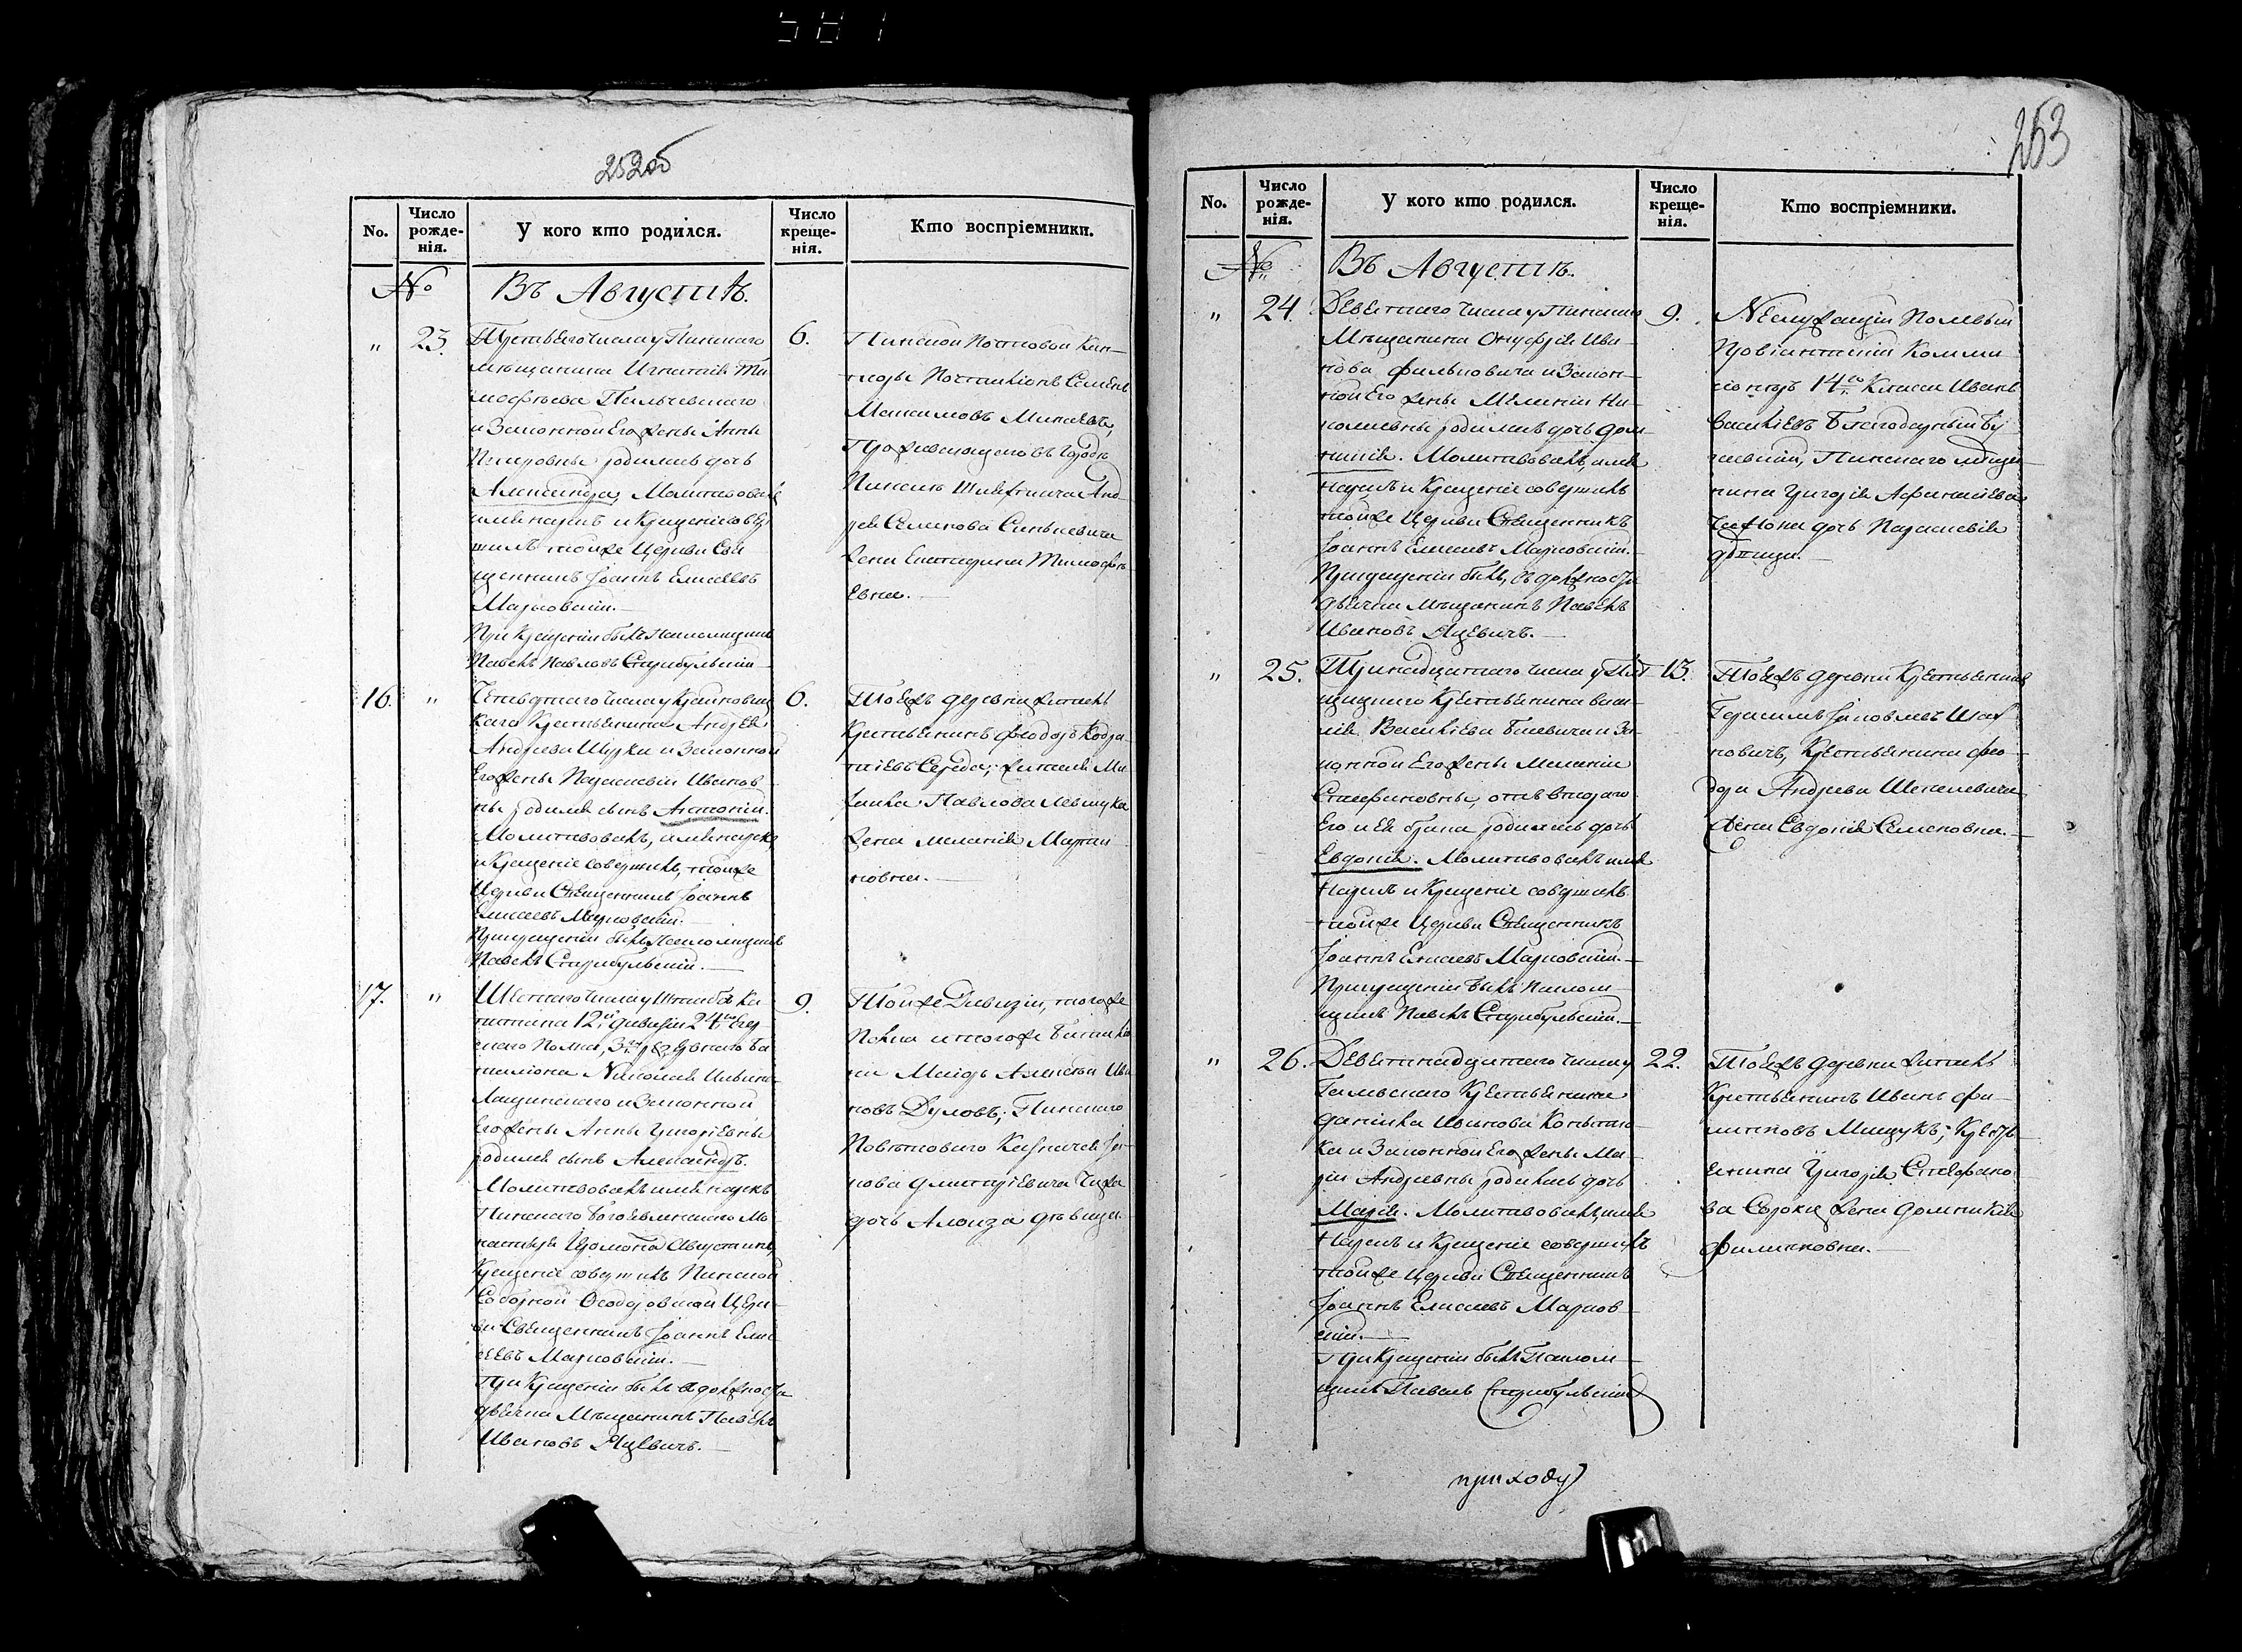 252об
No.
Число рожде-нія.
У кого кто родился.
Число креще-нія.
Кто воспріемники.
№ Въ Августѣ.
" 23. Третьяго числа у Пинскаго 6.
мѣщанина Игнатія Ти
мофѣева Пальчевскаго
и Законной Его жены Анны
Петровны родилась дочь
Александра, Молитвовалъ
имя нарекъ и Крещеніе совер
шилъ тойже Церкви Свя
щенникъ Іоаннъ Елисеевъ
Марковскій.
При Крещеніи былъ Паломщикъ
Павелъ Павловъ
Пинской Почтовой Кон-
торы Почталіонъ Семенъ
Максимовъ
Проживающаго въ городѣ
Пинскѣ Шляхтича Анд
рея Семенова Синкевича
жена Екатерина Тимофѣ
Евна.
16. " Четвертаго числа у 6.
каго Крестьянина Андрея
Андреева Шурка и Законной
Его жены Параскевіи Иванов
ны родился сынъ Антоній.
Молитвовалъ, имя нарекъ
и Крещеніе совершилъ, тойже
Церкви Священникъ Іоаннъ
Елисеевъ Марковскій.
При крещеніи былъ Паломщикъ
Павелъ
Тоежъ деревни житель
Крестьянинъ Феодоръ Кодра
тіевъ Середа; жителя Ми
хаила Павлова Левчука
жена Меланія Марти
новна.
17. " Шестаго числа у Штабсъ Ка 9.
питана 12й дивизіи 24го Егер
скаго Полка, 3го резервнаго Ба
таліона Николая
и Законной
Его жены Анны Григоріевны
родился сынъ Александръ.
Молитвовалъ имя нарекъ
Пинскаго Богоявленскаго Мо
настыря Іеромонахъ Августинъ,
Крещеніе совершилъ Пинской
Соборной Ѳеодоровской Церк
ви Священникъ Іоаннъ Ели
сеевъ Марковскій.
При Крещеніи былъ въ должности
дьячка Мѣщанинъ Павелъ
Ивановъ Яцевичъ.
Тойже Дивизіи, тогоже
Полка и тогоже Баталіо
на Маіоръ Алексѣй Ива
новъ Дуловъ; Пинскаго
Повѣтоваго Казначея
нова Дмитріевича Чижа
дочь Алоиза дѣвица.
253
No.
Число рожде-нія.
У кого кто родился.
Число креще-нія.
Кто воспріемники.
№ Въ Августѣ.
" 24. Девятаго числа у Пинскаго 9.
Мѣщанина Онуфрія Ива
нова Фильповича и Закон-
ной Его жены Меланіи Ни
колаевны родилась дочь Дом
никія. Молитвовалъ, имя
нарекъ и Крещеніе совершилъ
тойже Церкви Священникъ
Іоаннъ Елисеевъ Марковскій.
При крещеніи былъ, въ должности
дьячка Мѣщанинъ Павелъ
Ивановъ Яцевичъ.
Неслужащій Полевый
Провіантскій Комми
сіонеръ 14го Класса Иванъ
Васильевъ
Пинскаго мѣща
нина Григорія Афанасіева
дочь Параскевія
дѣвица.
" 25. Тринадцатаго числа у 13.
Крестьянина Васи
лія Васильева и За
конной Его жены Меланіи
Стефановны, отъ втораго
Его и Ея брака родилась дочь
Евдокія. Молитвовалъ имя
Нарекъ и Крещеніе совершилъ
тойже Церкви Священникъ
Іоаннъ Елисеевъ Марковскій.
При крещеніи былъ Палом
щикъ Павелъ
Тоежъ деревни Крестьянинъ
Герасимъ Іаковлевъ
новичъ, Крестьянина Фео
дора Андреева Шепелевича
Жена Евдокія Семеновна.
" 26. Девятнадцатаго числа у 22.
Крестьянина
Даніила
ка и Законной Его жены Ма
ріи Андреевны родилась дочь
Марія. Молитвовалъ, имя
Нарекъ и Крещеніе совершилъ
тойже Церкви Священникъ
Іоаннъ Елисеевъ Марков
скій.
При Крещеніи былъ Палом
щикъ Павелъ
Тоежъ деревни житель
Крестьянинъ Иванъ Фи
липповъ Мищукъ; Кресть
янина Григорія Стефано
ва Сороки жена Домникія
Филипповна.
приходу